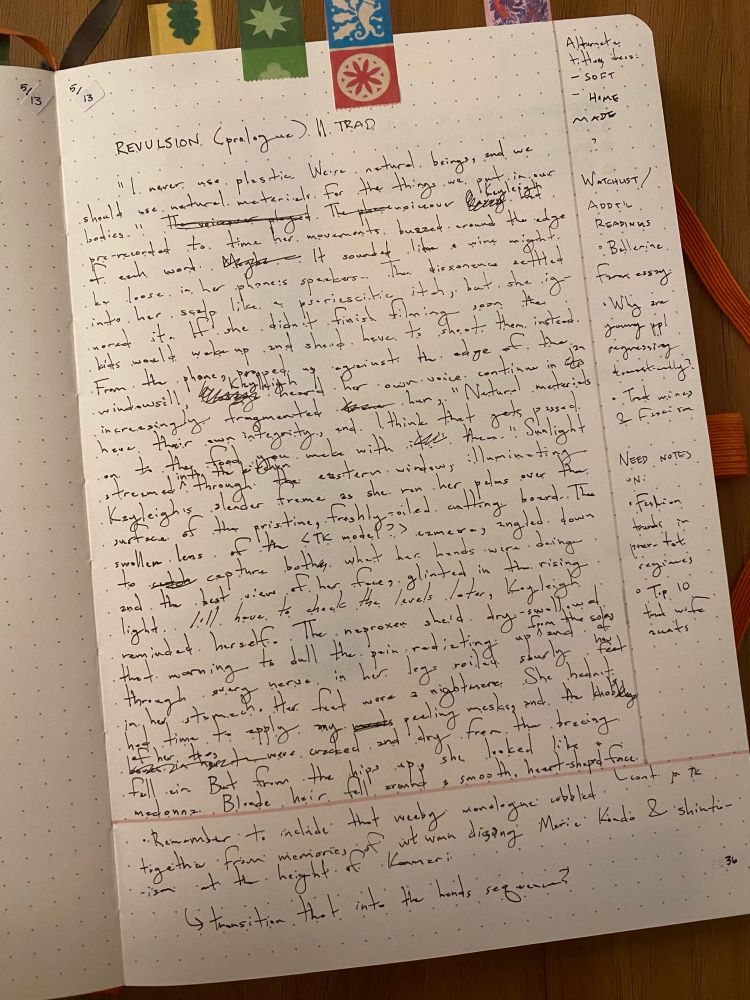 5/13
5/13
REVULSION (prologue) || TRAD
"I never use plastic. We're natural beings, and we
should use natural materials for the things we put in our
bodies." The voiceover played. The voiceover Kayleigh had
pre-recorded to time her movements buzzed around the edge
of each word. It sounded like a wire might
be loose in her phone's speakers. The dissonance settled
into her scalp like a psoriescitic itch, but she ig-
nored it. If she didn't finish filming soon the
kids would wake up and she'd have to shoot them instead.
From the phone, propped up against the edge of the
windowsill, Kayleigh heard her own voice continue in an
increasingly fragmented hum, "Natural materials
have their own integrity, and I think that gets passed
on to the food you make with them." Sunlight
streamed into the kitchen through the eastern windows, illuminating
Kayleigh's slender frame as she ran her palms over the
surface of the pristine, freshly-oiled cutting board. The
swollen lens of the <TK model?> camera, angled down
to capture both what her hands were doing
and the best view of her face, glinted in the rising
light. I'll have to check the levels later, Kayleigh
reminded herself. The naproxen she'd dry-swallowed
that morning to dull the pain radiating up from the soles and of her feet
through every nerve in her legs roiled sourly
in her stomach. Her feet were a nightmare. She hadn't
had time to apply any peeling masks, and the knobbly
of her toes were cracked and dry from the bracing
fall air. But from the hips up, she looked like a
madonna. Blonde hair fell around a smooth, heart-shaped face.
(cont. p. TK
· Remember to include that weeby monologue cobbled
together from memories of wt wmn dissing Marie Kondo & shinto-
ism at the height of Konmari
↳ transition that into the hands sequence?
Alternate
titles:
- SOFT
- HOME
MADE
?
WATCHLIST/
ADDT'L
READINGS
· Ballerina
Farm essay
· Why are
young ppl
regressing
domestically?
· Trad wives
& Fascism
NEED NOTES
ON:
· Fashion
trends in
pre-tot
regimes
· Top 10
trad wife
accts
36